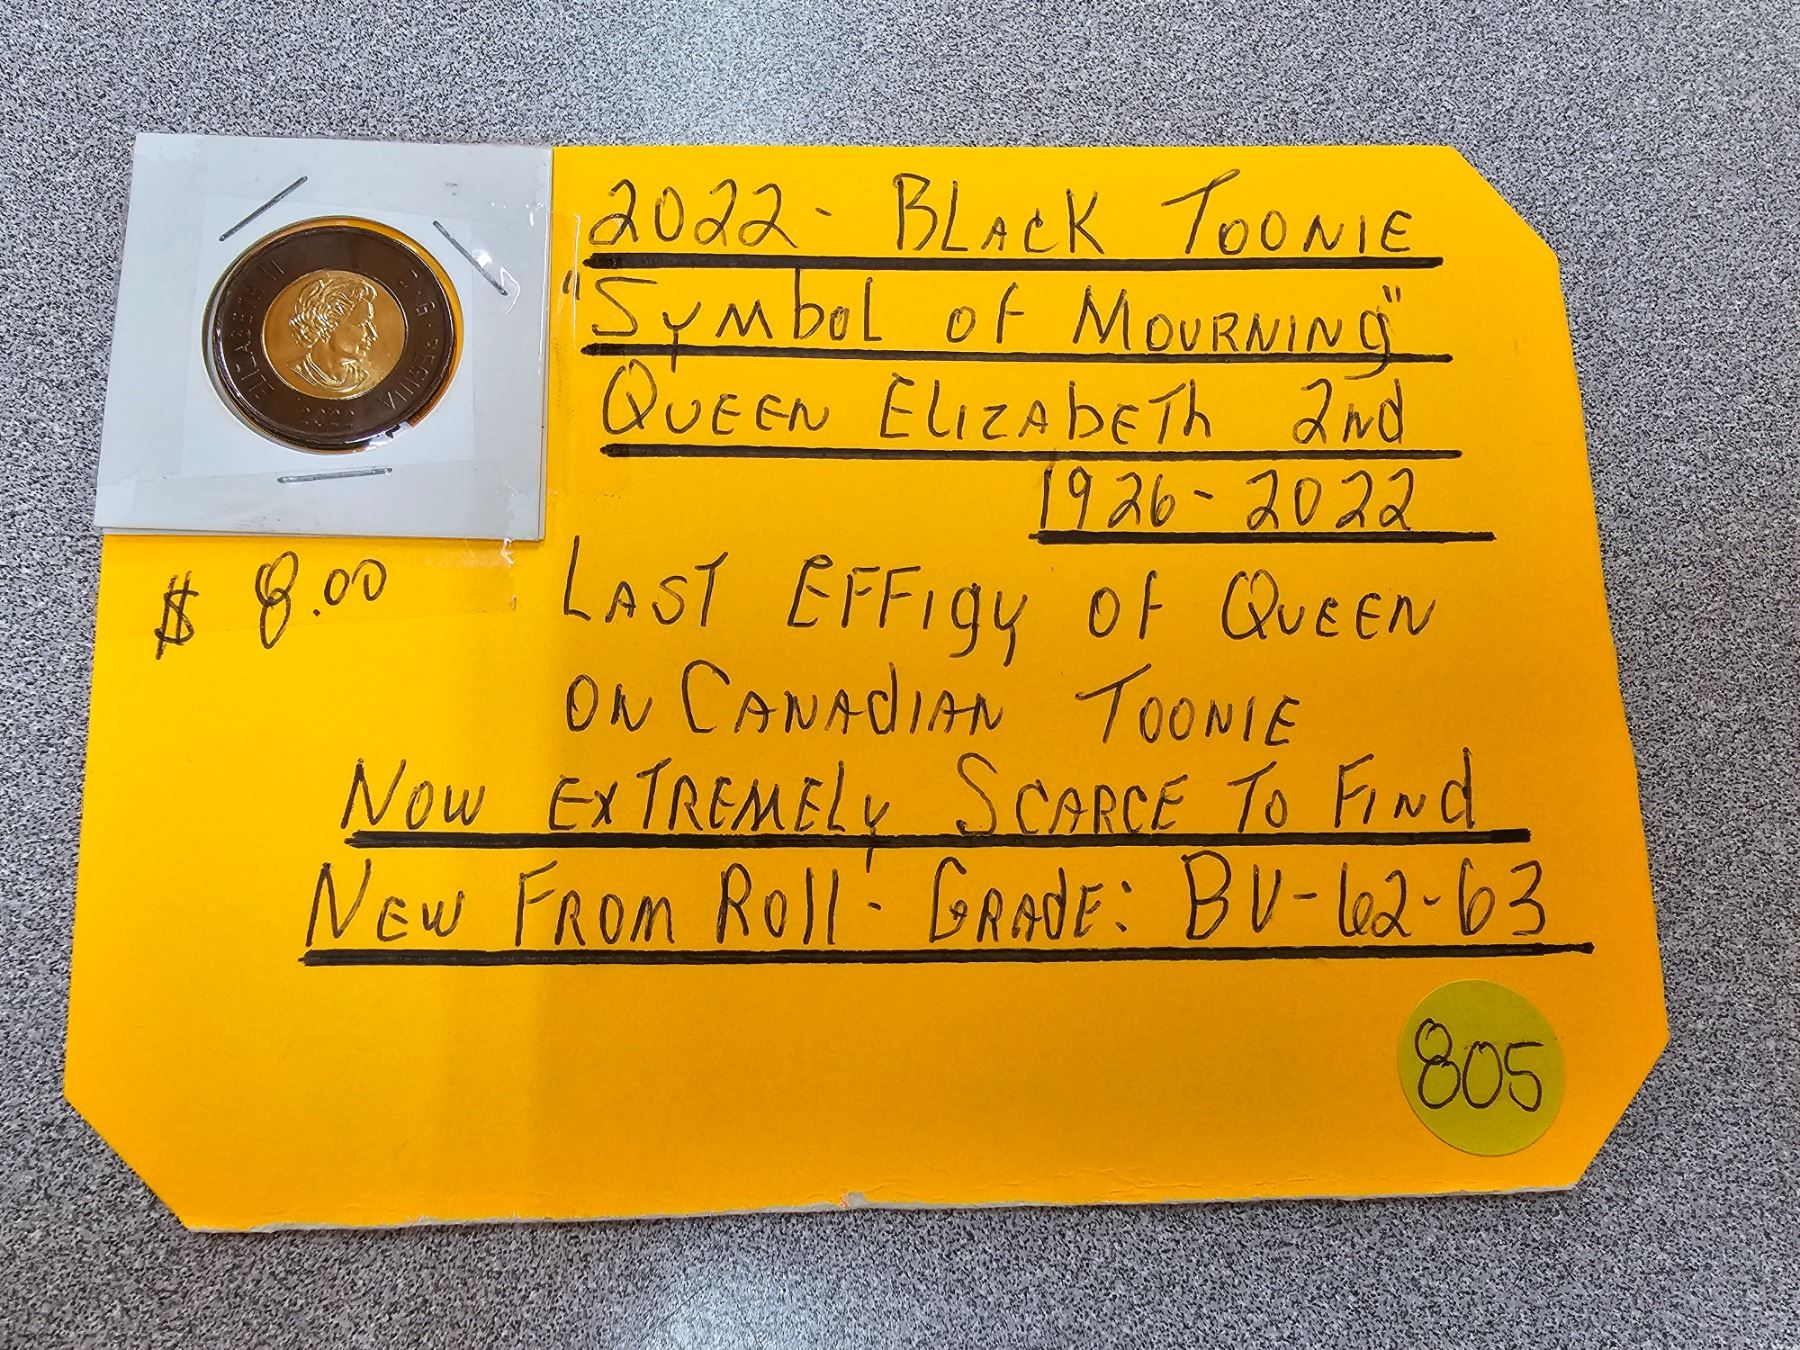 ELIZABETH II D·G·REGINA
2022
2022 - BLACK TOONIE
"SYMBOL OF MOURNING"
QUEEN ELIZABETH 2ND
1926 - 2022
$ 8.00
LAST EFFIGY OF QUEEN
ON CANADIAN TOONIE
NOW EXTREMELY SCARCE TO FIND
NEW FROM ROLL - GRADE: BU-62-63
805